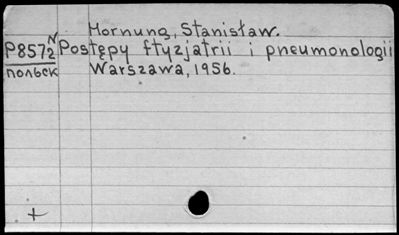 Hornung, Stanisław.
P857N2 Postępy ftyzjatrii i pneumonologii
польск Warszawa, 1956.
+